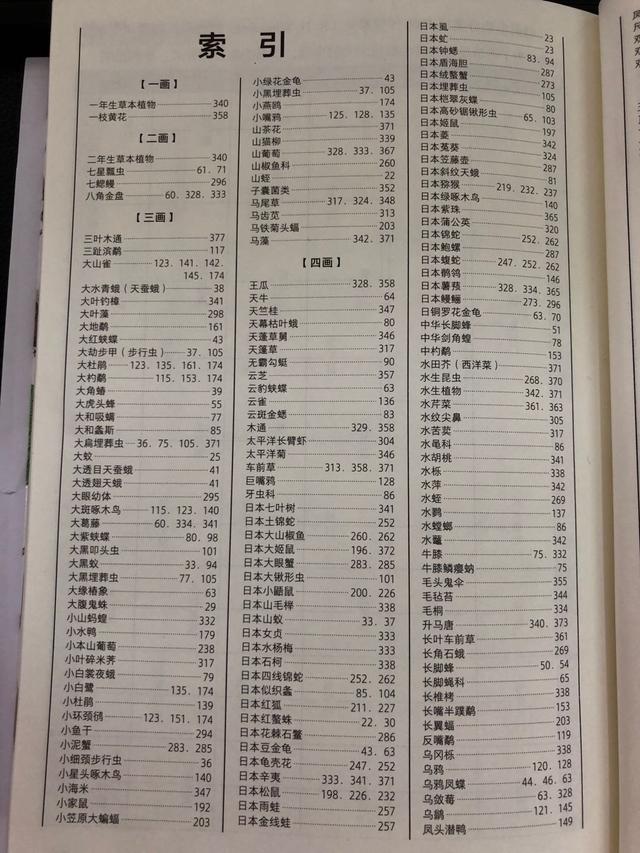 索 引
【一画】
一年生草本植物 340
一枝黄花 358
【二画】
二年生草本植物 340
七星瓢虫 61．71
七鳃鳗 296
八角金盘 60．328．333
【三画】
三叶木通 377
三趾滨鹬 117
大山雀 123．141．142．
145．174
大水青蛾（天蚕蛾） 38
大叶钓樟 341
大叶藻 298
大地鹬 161
大红蛱蝶 43
大劫步甲（步行虫） 37．105
大杜鹃 123．135．161．174
大杓鹬 115．153．174
大角蝽 39
大虎头蜂 55
大和吸螨 77
大和螽斯 85
大扁埋葬虫 36．75．105．371
大蚊 25
大透目天蚕蛾 41
大透翅天蛾 41
大眼幼体 295
大斑啄木鸟 115．123．140
大葛藤 60．334．341
大紫蛱蝶 80．98
大黑叩头虫 101
大黑蚁 33．94
大黑埋葬虫 77．105
大缘椿象 63
大腹鬼蛛 29
小山蚂蝗 332
小水鸭 179
小本山葡萄 238
小叶碎米荠 317
小白裳夜蛾 79
小白鹭 135．174
小杜鹃 139
小环颈鸻 123．151．174
小鱼干 294
小泥蟹 283．285
小细颈步行虫 36
小星头啄木鸟 140
小海米 347
小家鼠 192
小笠原大蝙蝠 203
小绿花金龟 43
小黑埋葬虫 37．105
小燕鸥 174
小嘴鸦 125．128．135
山茶花 371
山猫柳 339
山葡萄 328．333．367
山椒鱼科 260
山蛭 22
子囊菌类 352
马尾草 317．324．348
马齿苋 313
马铁菊头蝠 203
马藻 342．371
【四画】
王瓜 328．358
天牛 64
天竺桂 347
天幕枯叶蛾 80
天蓬草舅 346
天蓬草 317
无霸勾蜓 90
云芝 357
云豹蛱蝶 63
云雀 136
云斑金蟋 83
木通 329．358
太平洋长臂虾 304
太平洋菊 346
车前草 313．358．371
巨嘴鸦 128
牙虫科 86
日本七叶树 341
日本土锦蛇 252
日本大山椒鱼 260．262
日本大姬鼠 196．372
日本大眼蟹 283．285
日本大锹形虫 101
日本小鼯鼠 200．226
日本山毛榉 338
日本山蚁 33．37
日本女贞 333
日本水杨梅 333
日本石柯 338
日本四线锦蛇 252．262
日本似织螽 85．104
日本红狐 211．227
日本红螯蛛 22．30
日本花棘石鳖 286
日本豆金龟 43．63
日本龟壳花 247．252
日本辛夷 333．341．371
日本松鼠 198．226．232
日本雨蛙 257
日本金线蛙 257
日本虱 23
日本虻 23
日本钟蟋 83．94
日本盾海胆 287
日本绒螯蟹 287
日本埋葬虫 273
日本桤翠灰蝶 105
日本高砂锯锹形虫 80
日本姬鼠 65．103
日本菱 197
日本菟葵 342
日本笠藤壶 324
日本斜纹天蛾 287
日本猕猴 81
日本绿啄木鸟 219．232．237
日本紫珠 140
日本蒲公英 365
日本锦蛇 320
日本鲍螺 252．262
日本蝮蛇 287
日本鹡鸰 247．252．262
日本薯蓣 146
日本鳗鲡 328．334．365
日铜罗花金龟 273．296
中华长脚蜂 63．70
中华剑角蝗 51
中杓鹬 78
水田芥（西洋菜） 153
水生昆虫 371
水生植物 268．370
水芹菜 342．371
水纹尖鼻 361．363
水苦荬 305
水黾科 317
水胡桃 86
水栎 341
水萍 338
水蛭 342
水鹨 269
水螳螂 137
水鳖 86
牛膝 342
牛膝鳞瘿蚋 75．332
毛头鬼伞 75
毛毡苔 355
毛桐 344
升马唐 334
长叶车前草 340．373
长角石蛾 361
长脚蜂 269
长脚蝇科 50．54
长椎栲 65
长嘴半蹼鹬 338
长翼蝠 153
反嘴鹬 203
乌冈栎 119
乌鸦 338
乌鸦凤蝶 120．128
乌蔹莓 44．46．63
乌鹟 63．328
凤头潜鸭 121．145
149